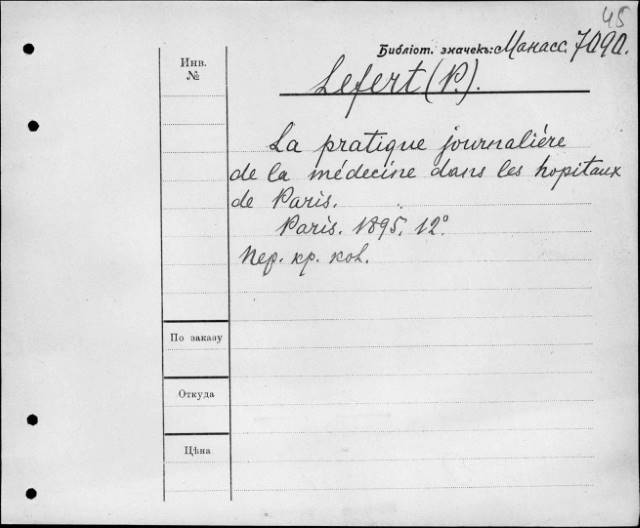 45
Библіот. значекъ: Манасс. 7090.
Инв.
№
Lefert (P.).
La pratique journaliére
de la médecine dans les hopitaux
de Paris.
Paris. 1895. 12°
Пер. кр. кож.
По заказу
Откуда
Цѣна